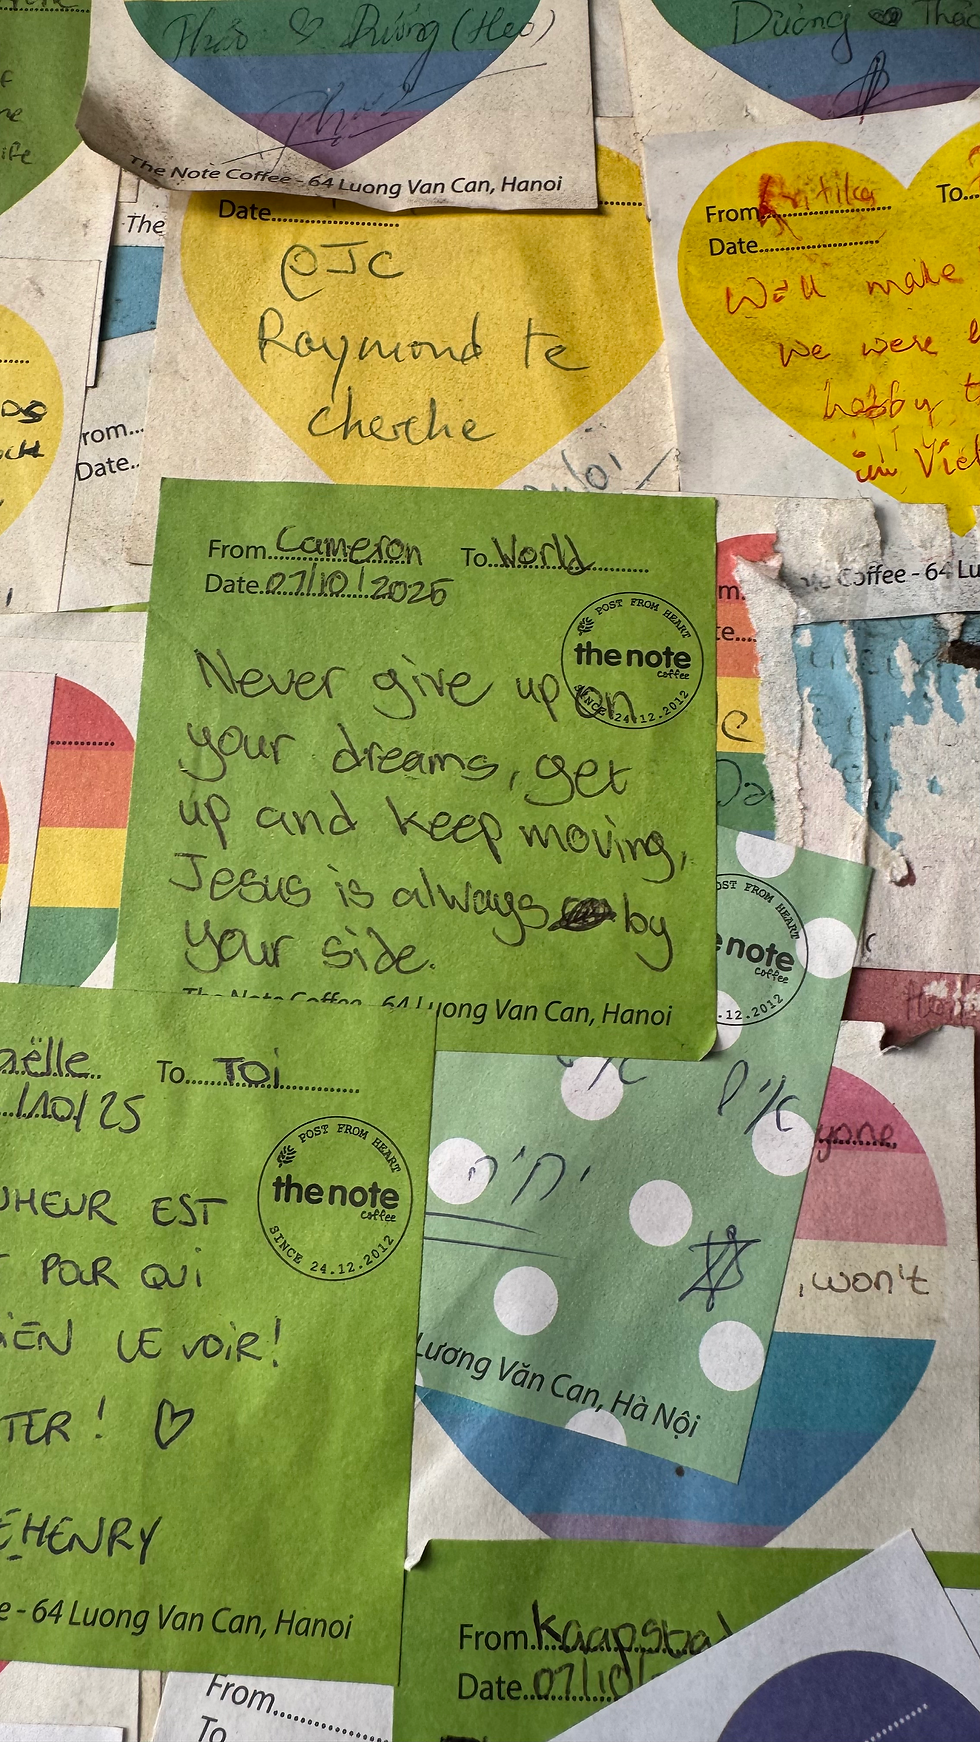 Thảo ♡ Dương (Heo)
The Note Coffee - 64 Luong Van Can, Hanoi
Dương ♡
The
Date
@JC
Raymond te
cherche
From
Date
To
We'll make
we were
happy
in
rom
Date
From Cameron To World
Date 07/10/2025
POST FROM HEART
the note
coffee
SINCE 24.12.2012
Never give up on
your dreams, get
up and keep moving,
Jesus is always by
your side.
The Note Coffee - 64 Luong Van Can, Hanoi
Coffee - 64 Lu
OST FROM HEART
e note
coffee
.12.2012
aëlle To Toi
/10/25
POST FROM HEART
the note
coffee
SINCE 24.12.2012
HEUR EST
POUR QUI
IEN LE VOIR!
TER! ♡
EHENRY
e - 64 Luong Van Can, Hanoi
yone
, won't
Lương Văn Can, Hà Nội
From Kaapsta
Date 07/10/
From
To